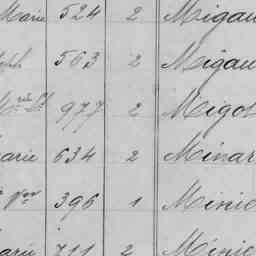 Marie 524 2 Migau
563 2 Migau
977 2 Migot
arie 634 2 Minar
396 1 Minie
arie 711 2 Minie